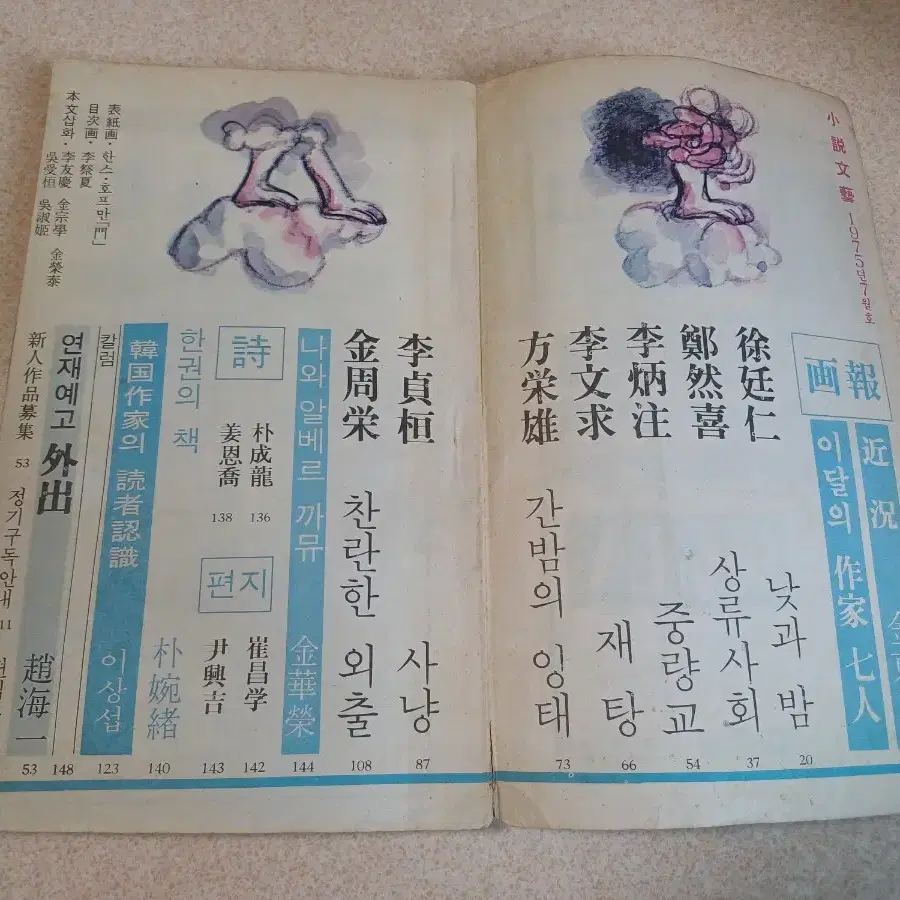 小說文藝 1975년7월호
画報
近況
이달의 作家 七人
徐廷仁 낮과 밤 20
鄭然喜 상류사회 37
李炳注 중랑교 54
李文求 재탕 66
方栄雄 간밤의 잉태 73
李貞桓 사냥 87
金周栄 찬란한 외출 108
나와 알베르 까뮈 金華榮 144
詩
朴成龍 136
姜恩喬 138
편지
崔昌学 142
尹興吉 143
한권의 책 朴婉緖 140
韓国作家의 読者認識 이상섭 123
칼럼 148
연재예고 外出 趙海一 53
新人作品募集 53
정기구독안내 11
表紙画·한스·호프만「門」
目次画·李祭夏
本文삽화·李友慶 金宗學 金榮泰
吳受桓 吳淑姬